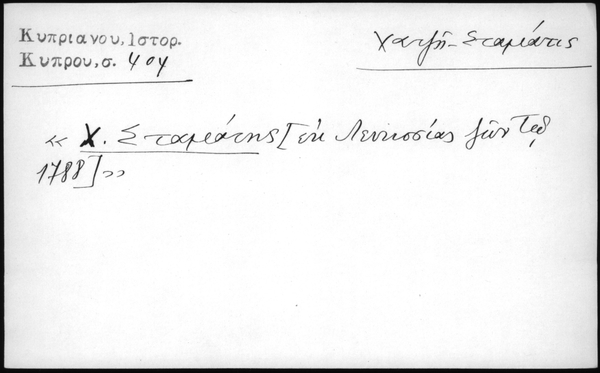 Κυπριανου, Ιστορ.
Κυπρου, σ. 404
Χατζῆ-Σταμάτις
« Χ. Σταμάτης [ἐκ Λευκοσίας ζῶν τῷ
1788] »